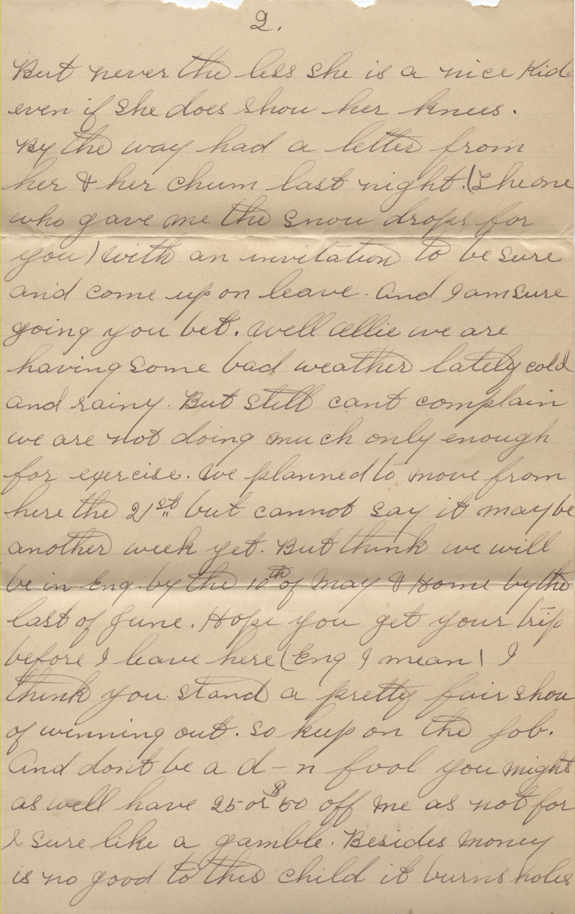 2.
But never the less she is a nice Kid
even if she does show her knees.
By the way had a letter from
her & her chum last night. (The one
who gave me the snow drops for
you) with an invitation to be sure
and come up on leave. And I am sure
going you bet. Well Allie we are
having some bad weather lately cold
and rainy. But still cant complain
we are not doing much only enough
for exercise. We planned to move from
here the 21st but cannot say it may be
another week yet. But think we will
be in Eng. by the 10th of May & Home by the
last of June. Hope you get your trip
before I leave here (Eng I mean) I
think you stand a pretty fair show
of winning out. So keep on the job.
And don't be a d-n fool you might
as well have 25 or $50 off me as not for
I sure like a gamble. Besides money
is no good to this child it burns holes